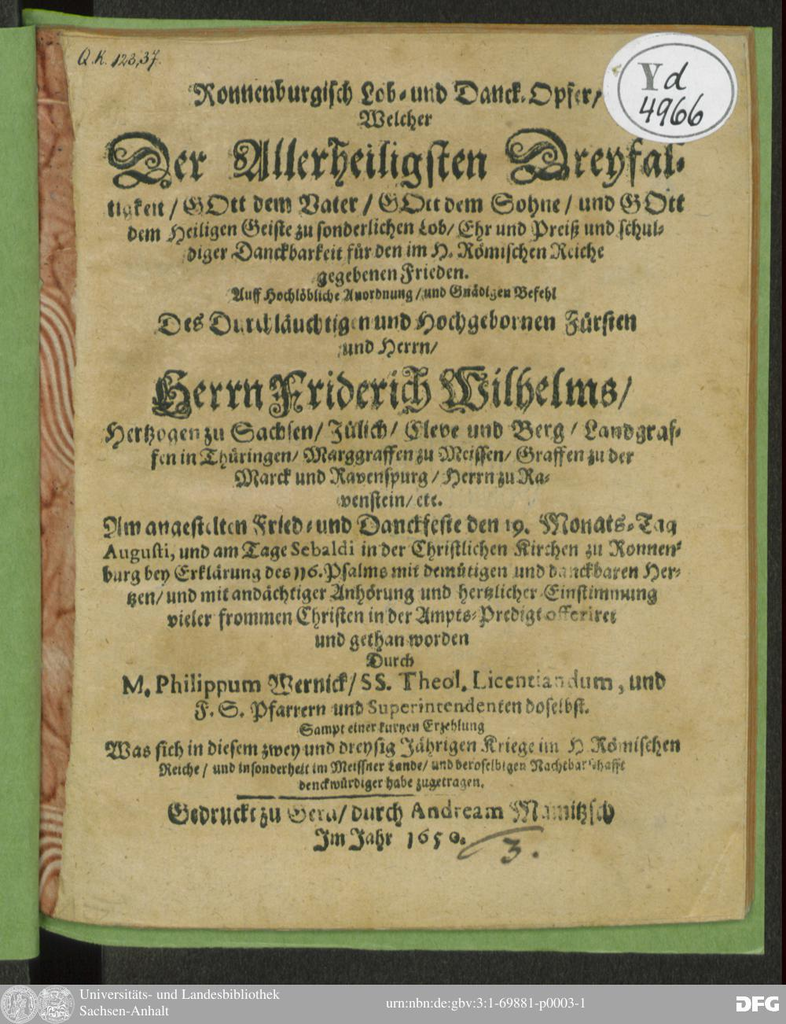 Q.K. 123,37.
Yd
4966
Ronnenburgisch Lob- und Danck-Opfer/
Welcher
Der Allerheiligsten Dreyfal-
tigkeit / GOtt dem Vater / GOtt dem Sohne / und GOtt
dem Heiligen Geiste zu sonderlichen Lob/ Ehr und Preiß und schul-
diger Danckbarkeit für den im H. Römischen Reiche
gegebenen Frieden.
Auff Hochlöbliche Anordnung / und Gnädigen Befehl
Des Durchläuchtigen und Hochgebornen Fürsten
und Herrn/
Herrn Friderich Wilhelms/
Hertzogen zu Sachsen/ Jülich/ Cleve und Berg / Landgraf-
fen in Thüringen/ Marggraffen zu Meissen/ Graffen zu der
Marck und Ravenspurg / Herrn zu Ra-
venstein/ etc.
Am angestelten Fried- und Danckfeste den 19. Monats-Tag
Augusti, und am Tage Sebaldi in der Christlichen Kirchen zu Ronnen-
burg bey Erklärung des 116. Psalms mit demütigen und danckbaren Her-
tzen/ und mit andächtiger Anhörung und hertzlicher Einstimmung
vieler frommen Christen in der Ampts-Predigt offeriret
und gethan worden
Durch
M. Philippum Wernick/ SS. Theol. Licentiandum, und
F. S. Pfarrern und Superintendenten doselbst.
Sampt einer kurtzen Erzehlung
Was sich in diesem zwey und dreysig Jährigen Kriege im H Römischen
Reiche / und insonderheit im Meissner Lande/ und deroselbigen Nachtbarschafft
denckwürdiger habe zugetragen.
Gedruckt zu Gera/ durch Andream Mamitzsch
Im Jahr 1650.
3.
Universitäts- und Landesbibliothek
Sachsen-Anhalt
urn:nbn:de:gbv:3:1-69881-p0003-1
DFG